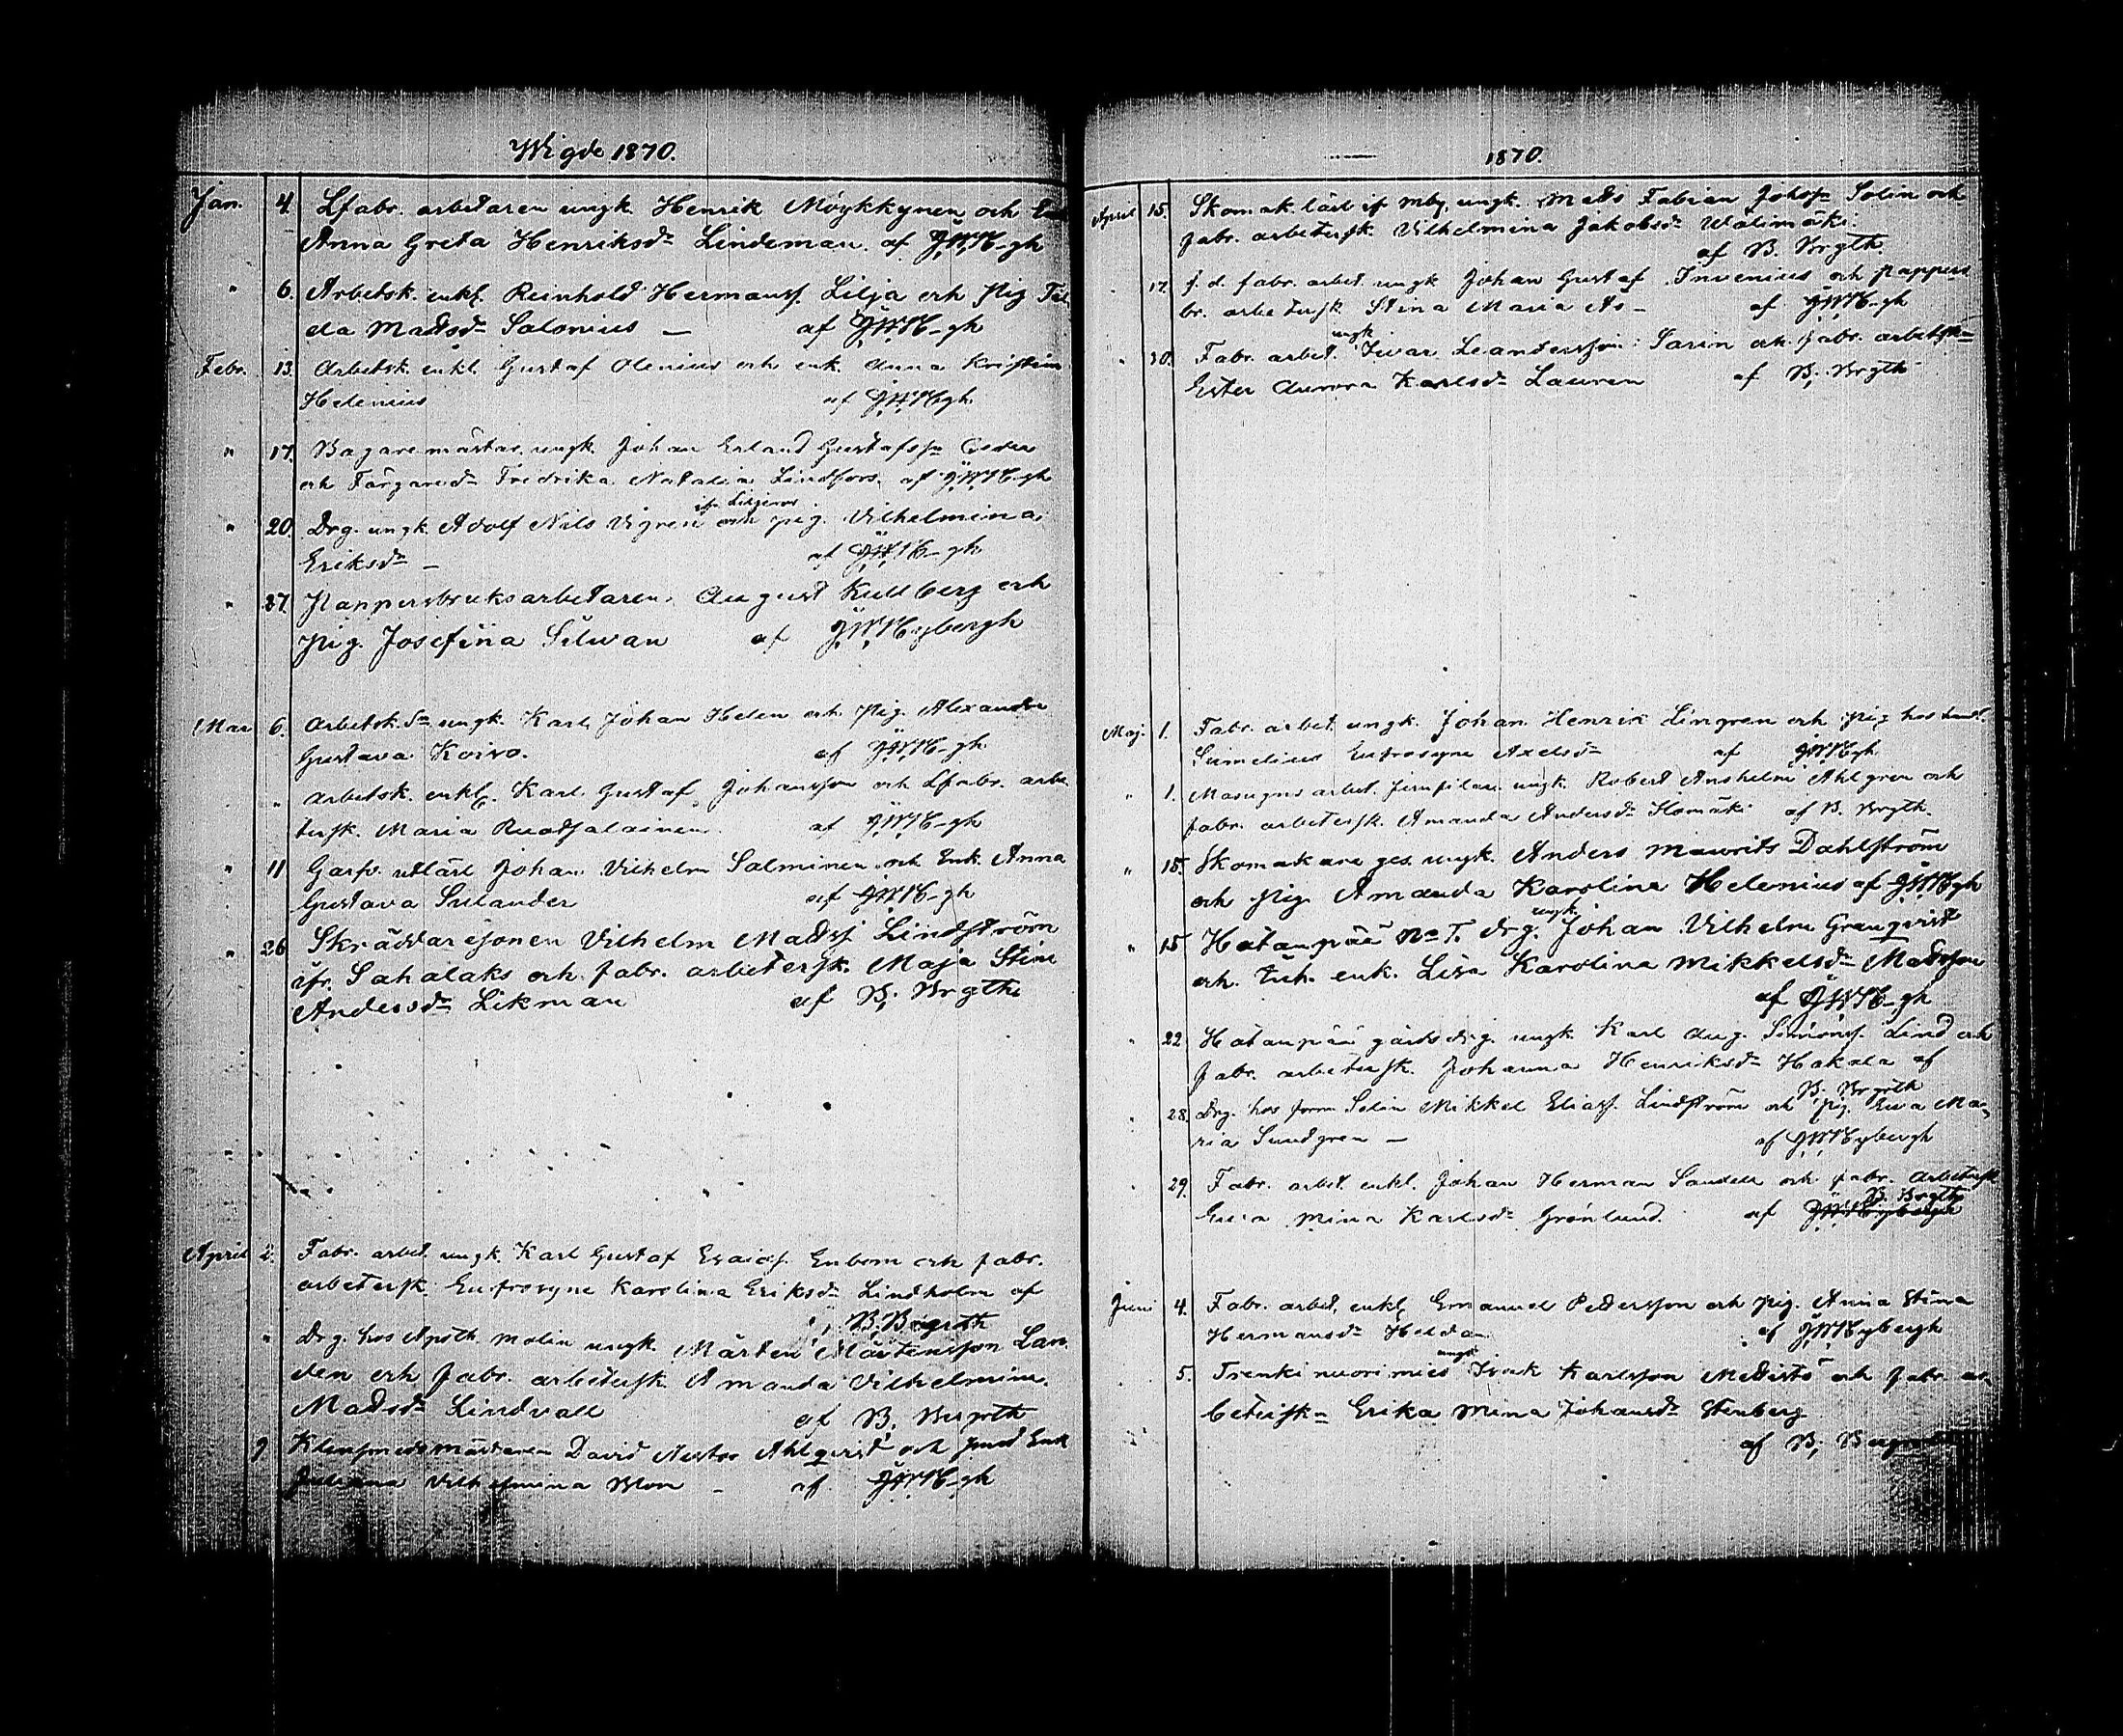 Wigde 1870.
Jan. 4. Lfabr. arbetaren ungk. Henrik Möykkynen och Enk
Anna Greta Henriksdr Lindeman. af JWH-gh
" 6. Arbetsk. enkl. Reinhold Hermansf. Lilja och Pig Til
da Mattsdr Salonius — af JWH-gh
Febr. 13. Arbetsk. enkl. Gustaf Olenius och enk. Anna Kristina
Helenius af JWHgh
" 17. Bagaremästar. ungk. Johan Erland Gustafsfn Ceder
och Färgaredr Fredrika Natalia Lindfors. af JWH-gh
" 20. Drg. ungk. Adolf Nils Vigren och pig. Vilhelmina
Eriksdr — af JWH-gh
" 27. Pappersbruksarbetaren. August Kullberg och
pig. Josefina Silwan af JWHybergh
Mar 6. Arbetsk.sn ungk. Karl Johan Helen och Pig. Alexandra
Gustava Koivo. af JWH-gh
" Arbetsk. enkl. Karl Gustaf Johansson och Lfabr. arbe
tersk. Maria Ruotsalainen. af JWH-gh
" 11 Garfv. Johan Vilhelm Salminen och Enk. Anna
Gustava Sulander af JWH-gh
" 26 Skräddaresonen Vilhelm Mattsf Lindström
ifr. Sahalaks och fabr. arbetersk. Maja Stina
Andersdr Likman af B. Brgth
April 2. Fabr. arbet. ungk. Karl Gustaf Esaiasf. Enbom och fabr.
arbetersk. Eufrosyne Karolina Eriksdr Lindholm af
B. Bergroth
" Drg. hos Apoth. Molin ungk. Mårten Mårtensson Lan
den och fabr. arbetersk. Amanda Vilhelmina
Mattsdr Lindvall af B. Bergroth
9 Klensmedsmästaren David Nestor Ahlqvist och Enk
Juliana Vilhelmina Blom — af JWH-gh
1870.
April 15. Skomak. lärl. ungk. Mats Fabian Johsfn Solin och
fabr. arbetersk. Vilhelmina Jakobsdr Wälimäki.
af B. Brgth.
17. f. d. fabr. arbet. ungk Johan Gustaf Invenius och pappers
br. arbetersk. Stina Maria As — af JWH-gh
ungk
" 30. Fabr. arbet. Iwar Leandersson Sarin och fabr. arbetsk-
Ester Aurora Karlsdr Lauren af B. Brgth
Maj. 1. Fabr. arbet. ungk. Johan Henrik Lingren och pig hos
Sumelius Eufrosyne Axelsdr af JWHgh
" 1. Masugns arbet. ungk. Robert Anshelm Ahlgren och
fabr. arbetersk. Amanda Andersdr Homäki af B. Brgth.
" 15. Skomakare ges. ungk. Anders Mauritz Dahlström
och Pig Amanda Karolina Helenius af JWHgh
ungk.
" 15 Hatanpää No 7. drg. Johan Vilhelm Granqvist
och enk. Lisa Karolina Mikkelsdr Mattsson
af JWH-gh
22 Hatanpää gårdsdrg. ungk. Karl Aug. Simonsf. Lind och
fabr. arbetersk. Johanna Henriksdr Hakala af
B. Brgth
28. Drg. hos Selin Mikkel Eliasf. Lindström och Pig. Eva Ma-
ria Sundgren — af JWHybergh
29. Fabr. arbet. enkl. Johan Herman Sandell och fabr. arbetersk
B. Brgth
Eva Mina Karlsdr Grönlund. af JWHybergh
Juni 4. Fabr. arbet. enkl. Emanuel Pettersson och Pig. Anna Stina
Hermansdr Heldan af JWHybergh
ungk
5. Trenki nuori mies Isak Karlsson Mettistö och fabr. ar-
betersk- Erika Mina Johansdr Stenberg
af B.